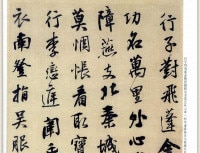 行子對飛蓬金
功名萬里外心
障燕支北秦城
莫惆悵看取寶
行李戀庭闈
衣南登指吳服